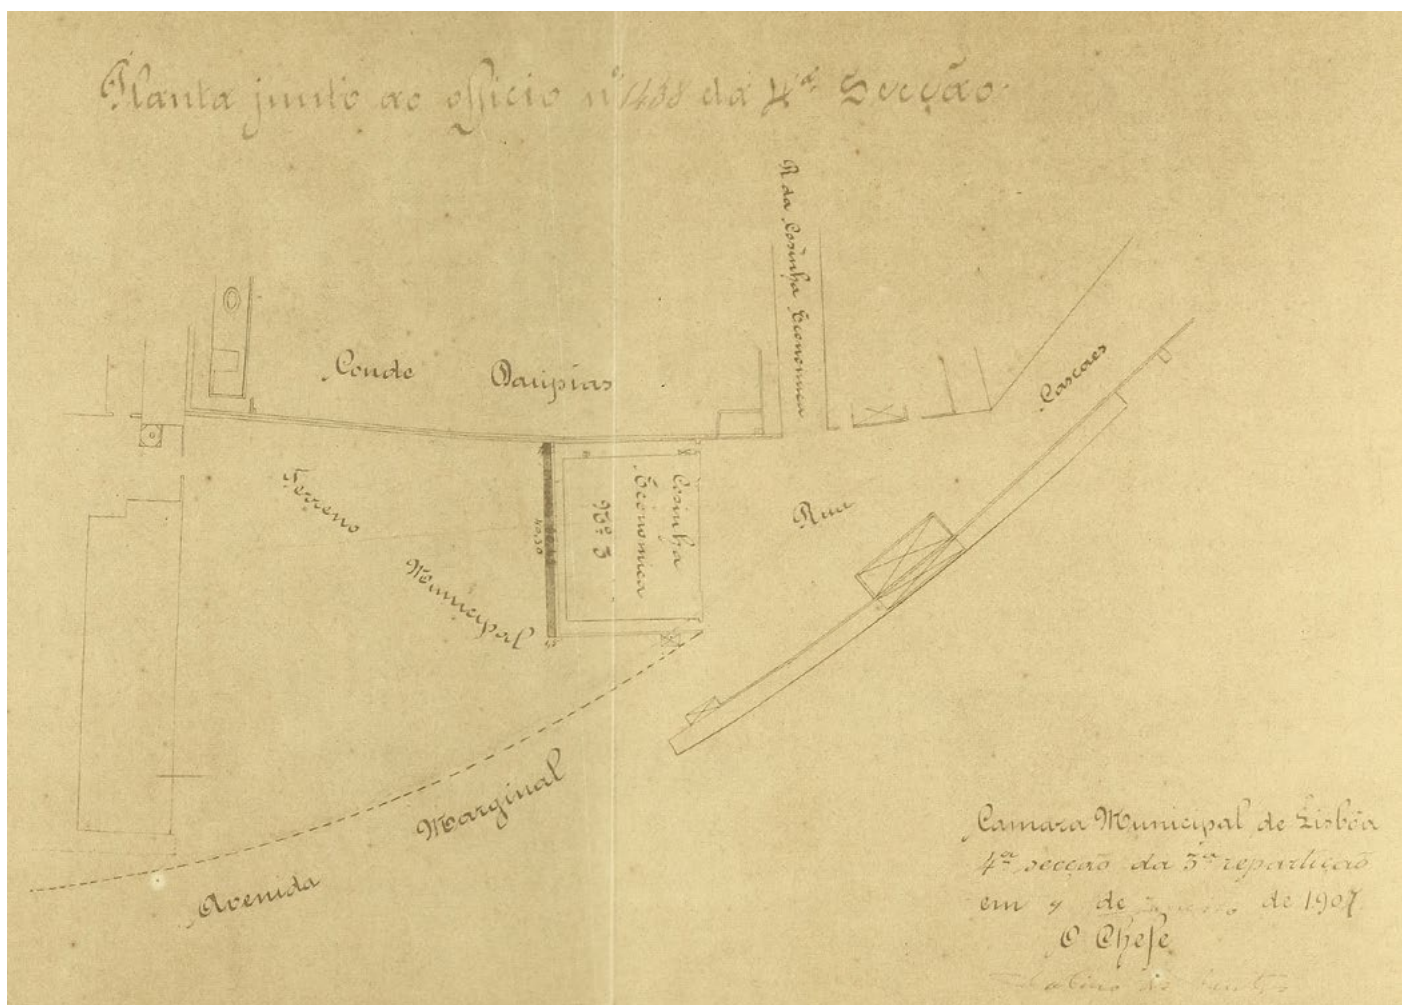 Planta junto ao officio nº 1488 da 4ª Secção.
R da Cosinha Economica
Conde Daupias
Cascaes
Rua
Terreno
Municipal
Cosinha
Economica
Nº 3
40,50
Avenida Marginal
Camara Municipal de Lisbôa
4ª secção da 3ª repartição
em de de 1907
O Chefe